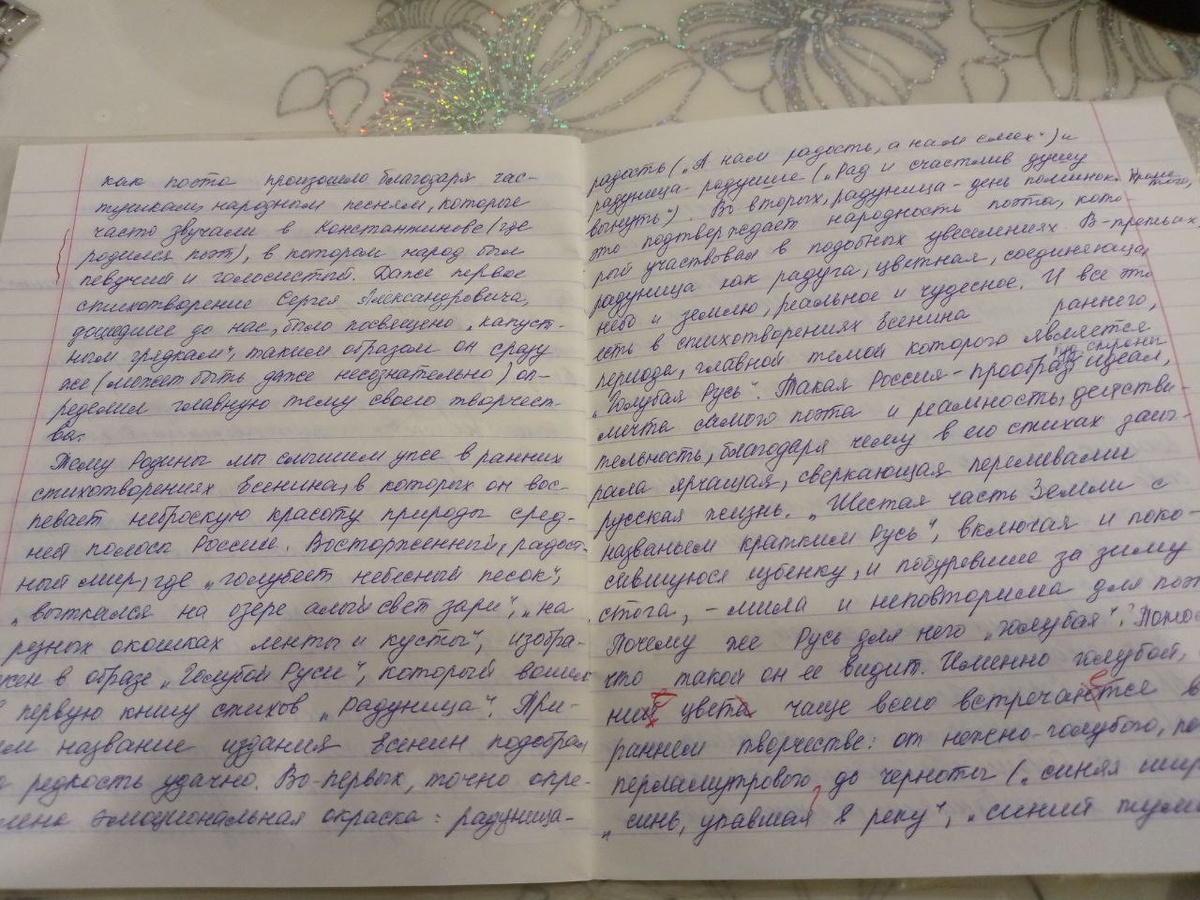 как поэта произошло благодаря час-
тушкам, народным песням, которые
часто звучали в Константинове (где
родился поэт), в котором народ был
певучий и голосистый. Даже первое
стихотворение Сергея Александровича,
дошедшее до нас, было посвящено „капуст-
ным грядкам", таким образом он сразу
же (может быть даже несознательно) оп-
ределил главную тему своего творчест-
ва.
Тему Родины мы слышим уже в ранних
стихотворениях Есенина, в которых он вос-
певает неброскую красоту природы сред-
ней полосы России. Восторженный, радост-
ный мир, где „голубеет небесный песок",
„выткался на озере алый свет зари", „на
резных окошках ленты и кусты", изобра-
жен в образе „Голубой Руси", который вошел
в первую книгу стихов „Радуница". При-
ем название издания Есенин подобрал
на редкость удачно. Во-первых, точно опре-
лена эмоциональная окраска: радуница-
радость („А нам радость, а нам смех") и
радуница - радушие („Рад и счастлив душу
вынуть"). Во вторых, радуница - день поминок. Кроме того,
это подтверждает народность поэта, кото-
рый участвовал в подобных увеселениях. В-третьих,
радуница как радуга, цветная, соединяющая
небо и землю, реальное и чудесное. И все это
есть в стихотворениях Есенина раннего,
периода, главной темой которого является
„Голубая Русь". Такая Россия - прообраз страны идеал,
мечта самого поэта и реальность, действи-
тельность, благодаря чему в его стихах заиг-
рала ярчащая, сверкающая переливами
русская жизнь. „Шестая часть Земли с
названьем кратким Русь", включая и поко-
сившуюся избенку, и побуревшие за зиму
стога, - мила и неповторима для поэт
Почему же Русь для него „голубая"? Потом
что такой он ее видит. Именно голубой,
ний цвета чаще всего встречаются в
раннем творчестве: от нежно-голубого, по
перламутрового, до черноты („синяя шир
„синь, упавшая в реку", „синий тума